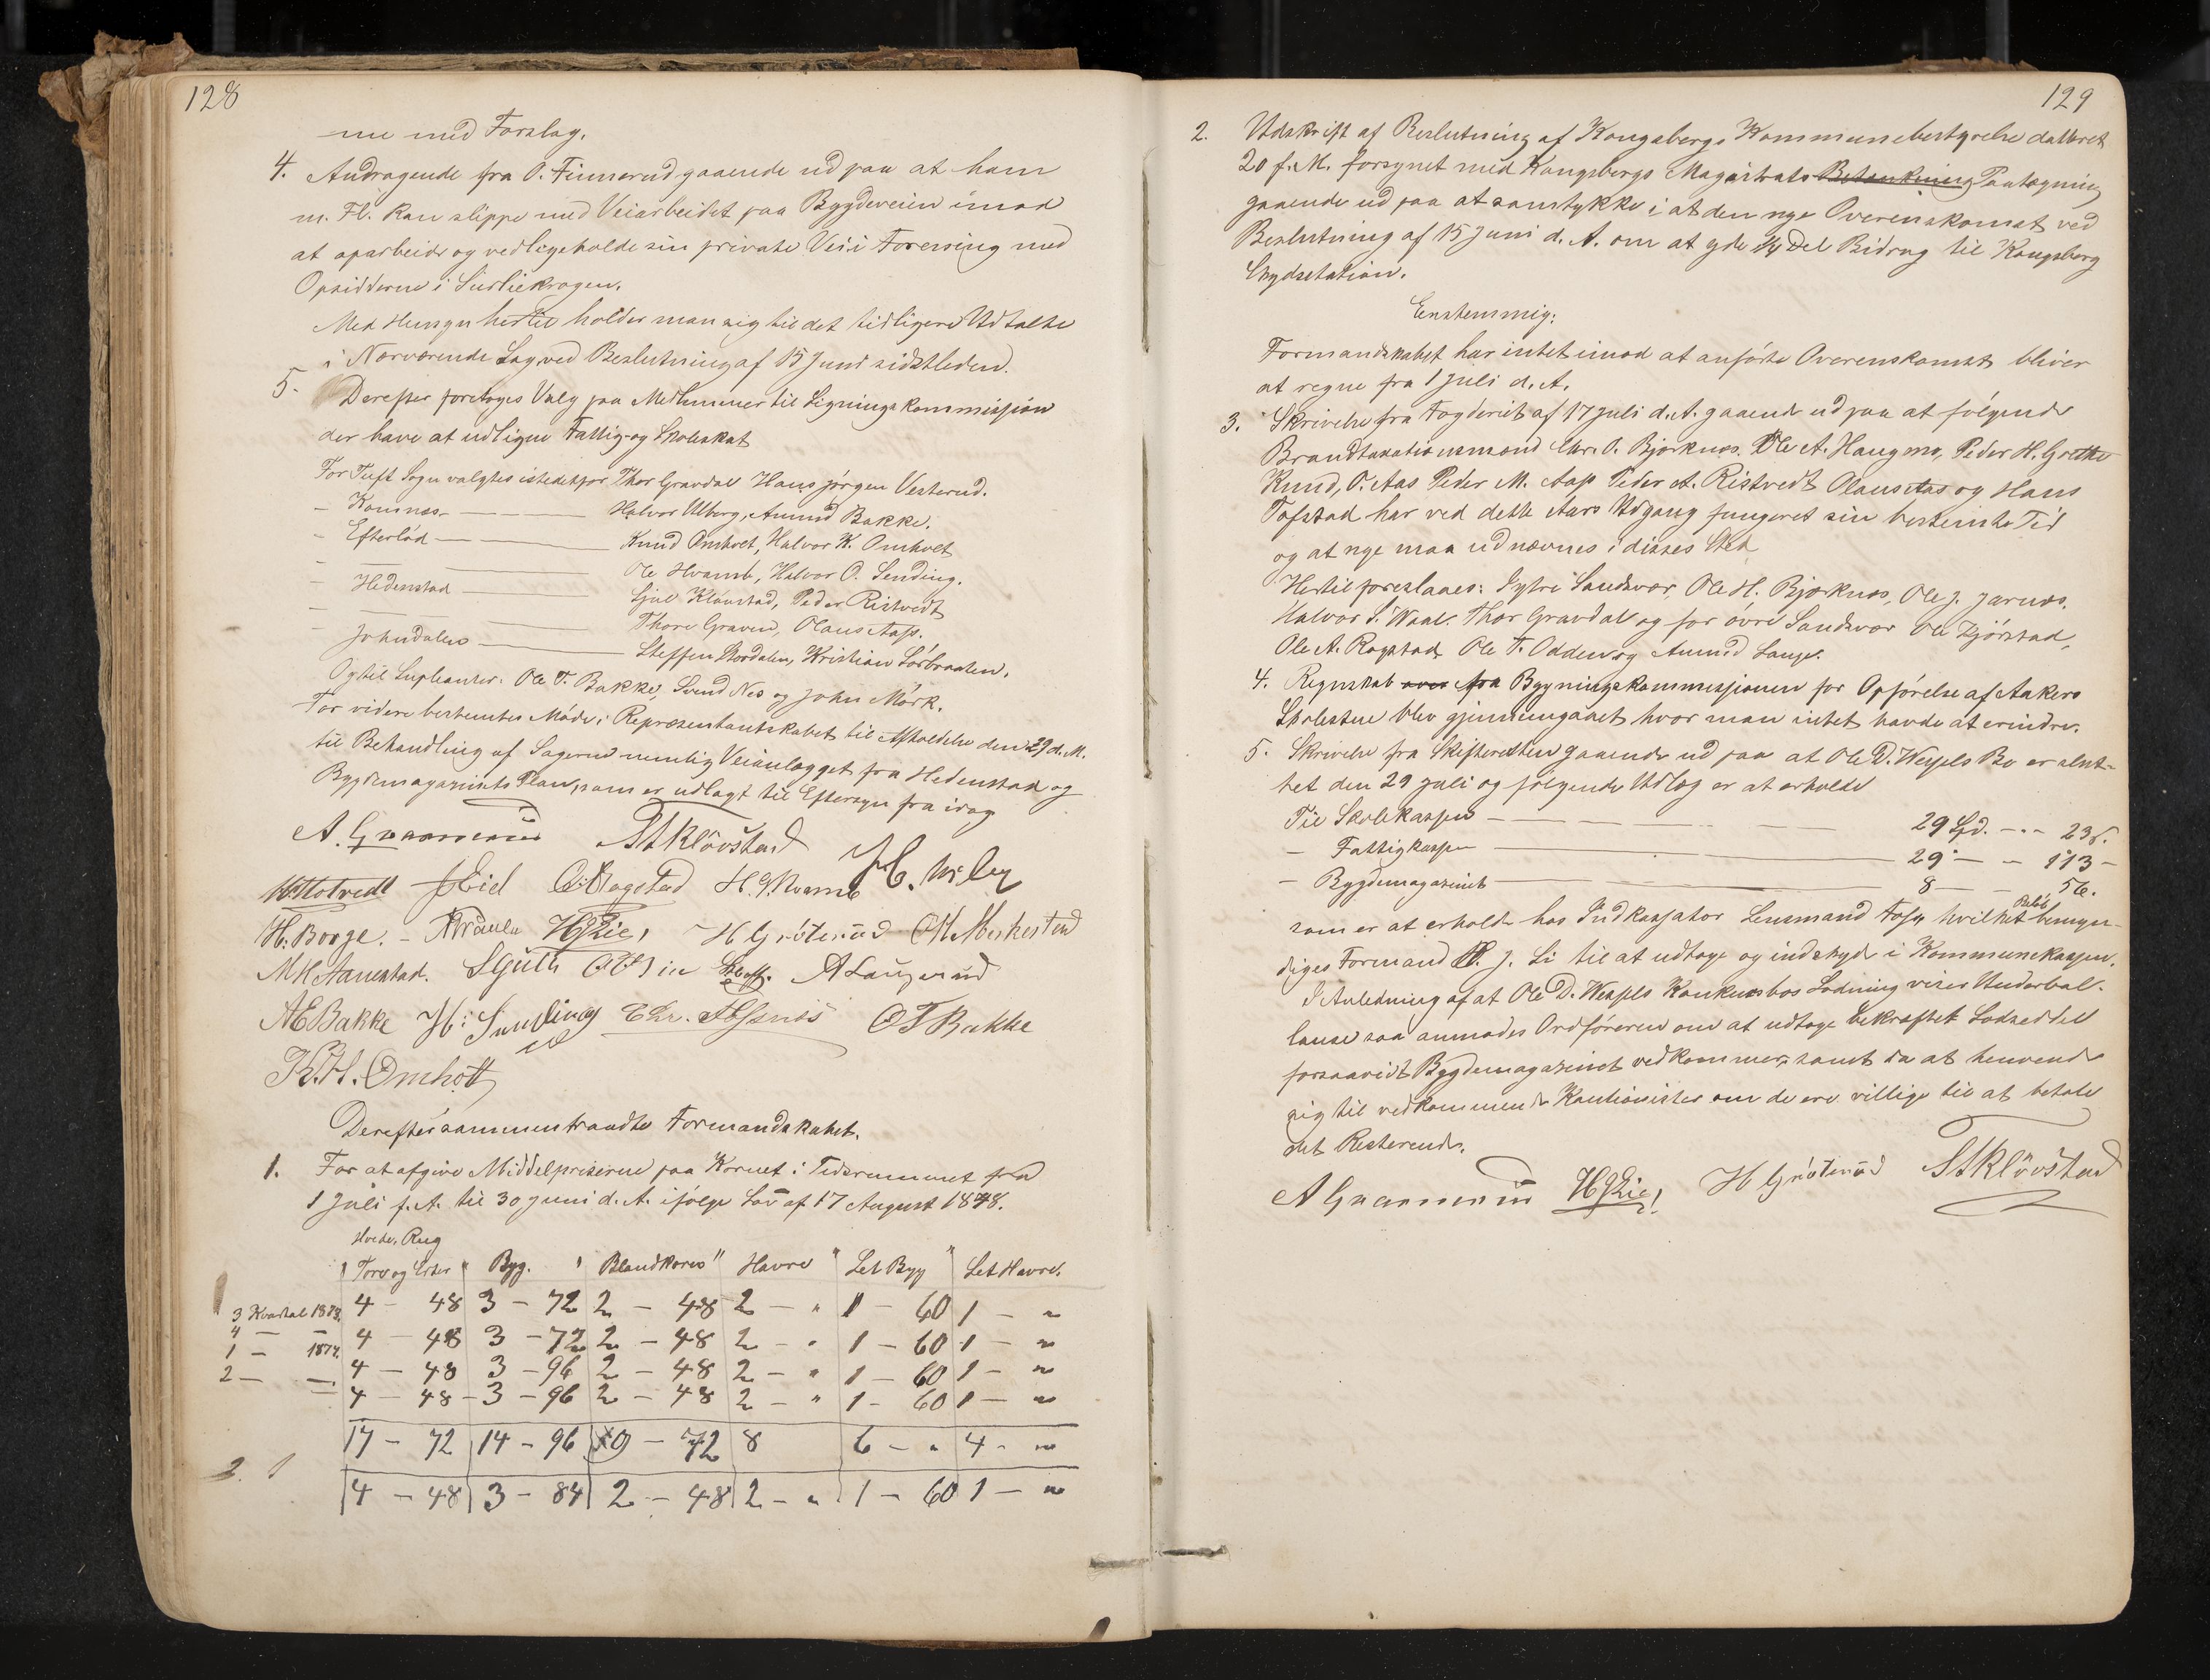 128
me med Forslag.
4. Andragende fra O. Finnerud gaaende ud paa at ham
m. Fl. kan slippe med Veiarbeidet paa Bygdeveien imod
at oparbeide og vedligeholde sin private Vei i Forening med
Opsidderne i Surliekrogen.
Med Hensyn hertil holder man sig til det tidligere Udtalte
i Nærværende Sag ved Beslutning af 15 Juni sidstleden.
5. Derefter foretoges Valg paa Medlemmer til Ligningskommission
der have at udligne Fattig- og Skoleskat
For Tuft Sogn valgtes istedetfor Thor Gravdal Hans Jørgen Vesterud.
— Komnes — Halvor Ulberg, Amund Bakke.
— Efteløt — Knud Omholt, Halvor K. Omholt
— — Ole Hvamb, Halvor O. Sending.
— Hedenstad — Gjul Kløvstad, Peder Ristvedt
— — Thore Graven, Olaus Aas.
— Johndalen — Steffen Skordalen, Kristian Sørbraaten.
Og til Supleanter: Ole T. Bakke, Svend Nes og John Mørk.
For videre bestemtes Møde i Repræsentantskabet til Afholdelse den 29 d. M.
til Behandling af Sagerne nemlig Veianlægget fra Hedenstad og
Bygdemagasinets Plan, som er udlagt til Eftersyn fra idag
A. Gunnerud St Kløvstad
JEid H. G. Kvamb
H. Borge. HGLie, H Grøterud
M H Aanestad. ALaugerud
AEBakke H: Sending Chr. OTBakke
K. H. Omholt
Derefter sammentraadte Formandskabet.
1. For at afgive Middelpriserne paa Kornet i Tidsrummet fra
1 Juli f. A. til 30 Juni d. A. ifølge Lov af 17 August 1848.
Hvede, Rug
Torv og Erter " Byg. " Blandkorn " Havre " Let Byg " Let Havre.
3 Kvartal 1873. 4 - 48 3 - 72 2 - 48 2 - " 1 - 60 1 - "
4 — — 4 - 48 3 - 72 2 - 48 2 - " 1 - 60 1 - "
1 — 1874. 4 - 48 3 - 96 2 - 48 2 - " 1 - 60 1 - "
2 — — 4 - 48 - 3 - 96 2 - 48 2 - " 1 - 60 1 - "
17 - 72 14 - 96 9 - 72 8 6 - " 4 - "
4 - 48 3 - 84 2 - 48 2 - " 1 - 60 1 - "
129
2. Udskrift af Beslutning af Kongsbergs Kommunebestyrelse datteret
20 f. M. forsynet med Kongsbergs Magistrats Betænkning Paategning
gaaende ud paa at samtykke i at den nye Overenskomst ved
Beslutning af 15 Juni d. A. om at yde 1/4 Del Bidrag til Kongsberg
Skydsstation.
Enstemmig:
Formandskabet har intet imod at anførte Overenskomst bliver
at regne fra 1 Juli d. A.
3. Skrivelse fra Fogderiet af 17 Juli d. A. gaaende ud paa at følgende
Brandtaxationsmænd Chr. O. Bjørknes. Ole A. Haugmo, Peder H. Grette
Knud, O. Aas Peder M. Aas Peder A. Ristvedt Olaus Aas og Hans
Tofstad har ved dette Aars Udgang fungeret sin bestemte Tid
og at nye maa udnævnes i disses Sted
Hertil foreslaaes: I ytre Sandsvær, Ole H. Bjørknes, Ole J. Jarnes.
Halvor S. Waal. Thor Gravdal og for øvre Sandsvær Ole Gjørstad,
Ole A. Rogstad, Ole T. Odden og Amund Lange.
4. Regnskab over fra Bygningskommissionen for Opførelse af Aakers
Skolestue blev gjennemgaaet hvor man intet havde at erindre.
5. Skrivelse fra Skifteretten gaaende ud paa at Ole D. Wessels Bo er slut-
tet den 29 Juli og følgende Udlæg er at erholde
Til Skolekassen — 29 Spd. — 23 s.
— Fattigkassen — 29 — 113 -
— Bygdemagasinet — 8 — 56.
som er at erholde hos Indkassator Lensmand Foss hvilket Beløb bemyn-
diges Formand H. J. Li til at udtage og indskyde i Kommunekassen.
I Anledning af at Ole D. Wessels Konkursbos Lodning viser Underbal-
lance saa anmodes Ordføreren om at udtage bekræftet Lodseddel
forsaavidt Bygdemagasinet vedkommer, samt da at henvende
sig til vedkommende Kautionister om de ere villige til at betale
det Resterende.
A Gunnerud HGLie, H Grøterud St Kløvstad